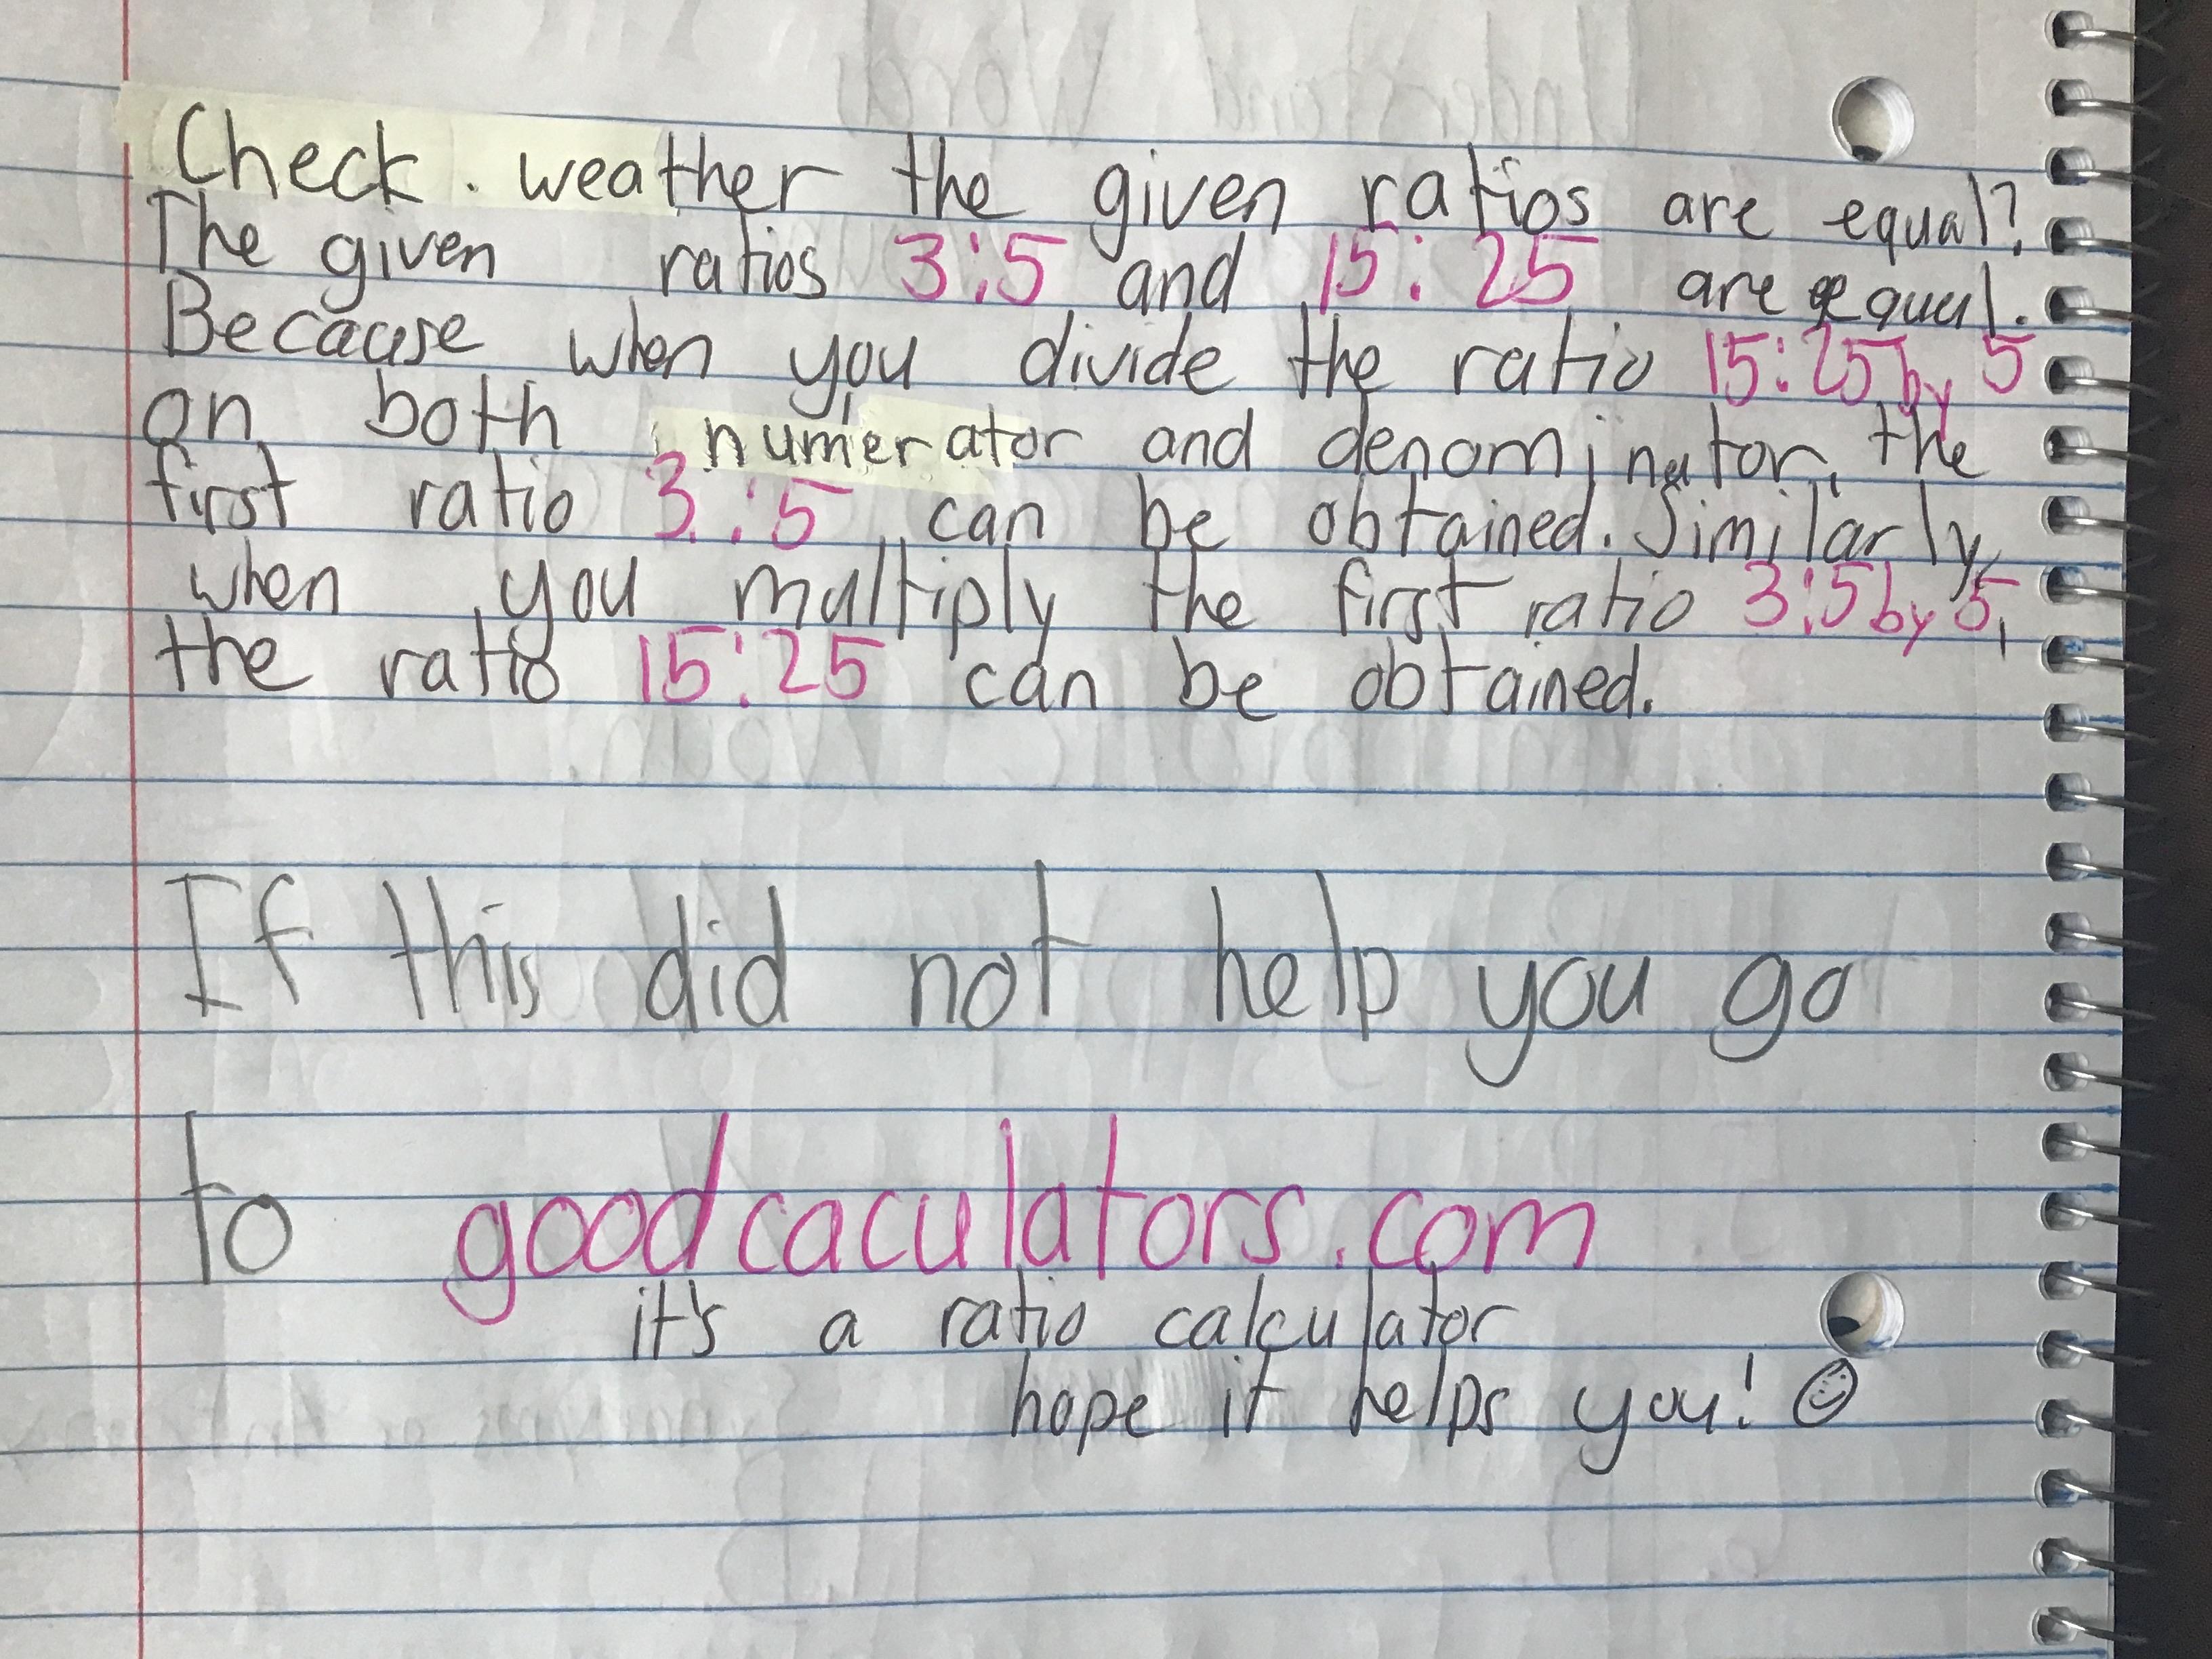 Check. weather the given ratios are equal?
The given ratios 3:5 and 15:25 are equal.
Because when you divide the ratio 15:25 by 5
on both numerator and denominator, the
first ratio 3:5 can be obtained. Similarly,
when you multiply the first ratio 3:5 by 5,
the ratio 15:25 can be obtained.
If this did not help you go
to goodcaculators.com
it's a ratio calculator
hope it helps you! ☺